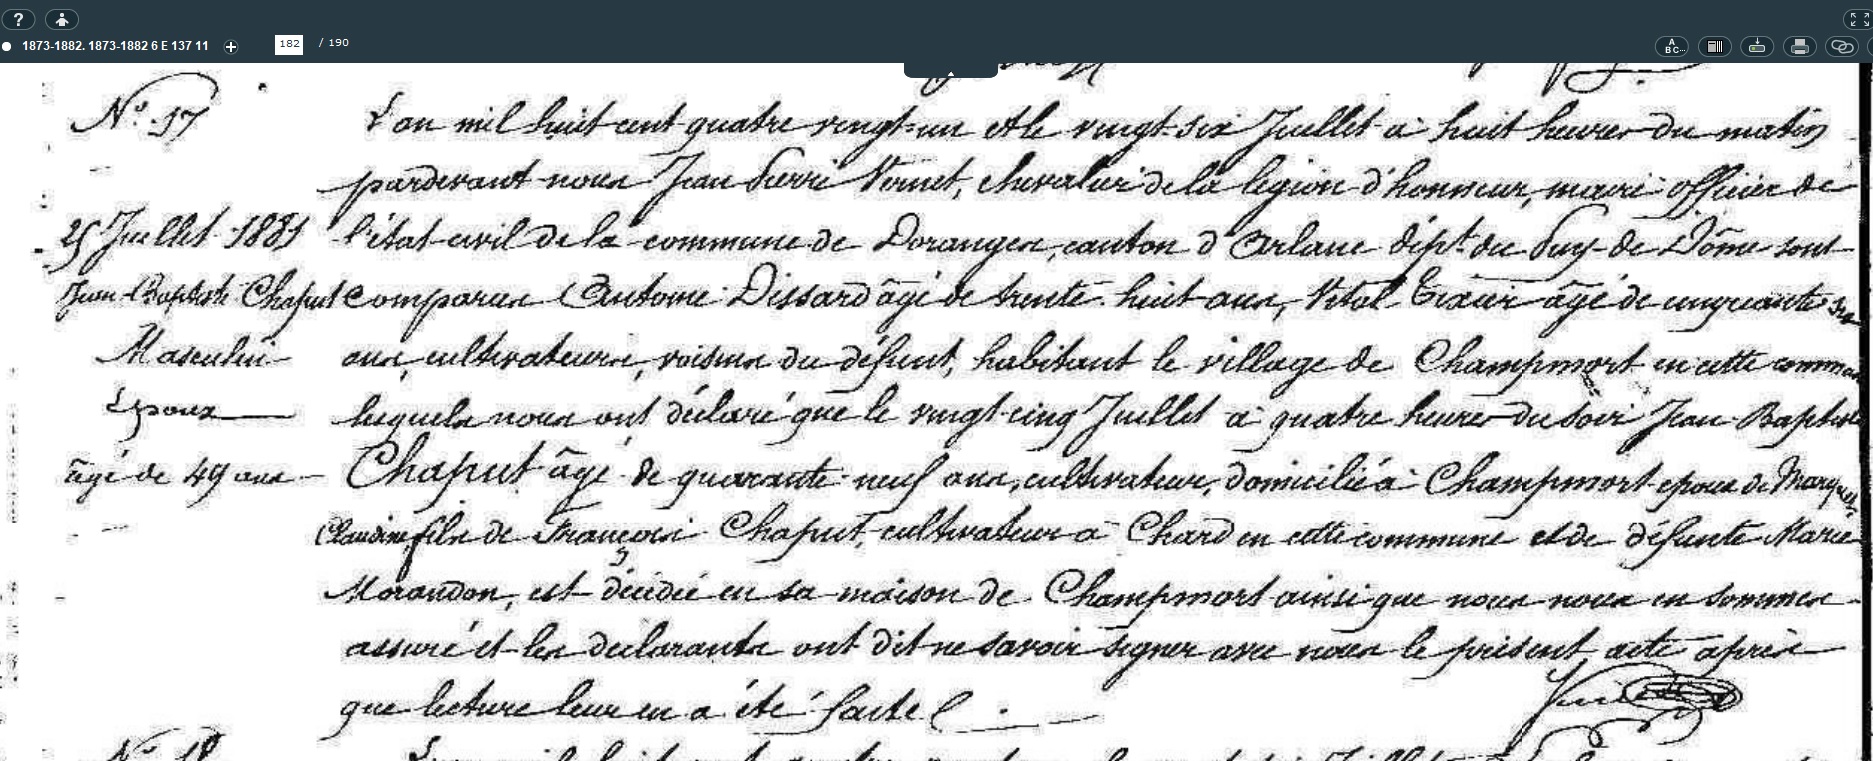 ?
1873-1882. 1873-1882 6 E 137 11
182 / 190
A
BC...
N.º 17
L'an mil huit cent quatre vingt-un et le vingt-six Juillet à huit heures du matin
pardevant nous Jean Pierre Vernet, chevalier de la légion d'honneur, maire officier de
25 Juillet 1881
l'état-civil de la commune de Doranges, canton d'Arlanc dép.t du Puy-de-Dôme sont
Jean-Baptiste Chaput
comparus Antoine Dissard âgé de trente-huit ans, Vital Tixier âgé de cinquante six
Masculin
ans, cultivateurs, voisins du défunt, habitant le village de Champmort en cette commune
Epoux
lesquels nous ont déclaré que le vingt-cinq Juillet à quatre heures du soir Jean-Baptiste
âgé de 49 ans
Chaput âgé de quarante-neuf ans, cultivateur, domicilié à Champmort époux de
Claudine, fils de François Chaput, cultivateur à Chard en cette commune et de défunte Marie
Morandon, est décédé en sa maison de Champmort ainsi que nous nous en sommes
assuré et les déclarants ont dit ne savoir signer avec nous le présent acte après
que lecture leur en a été faite
N.º 18